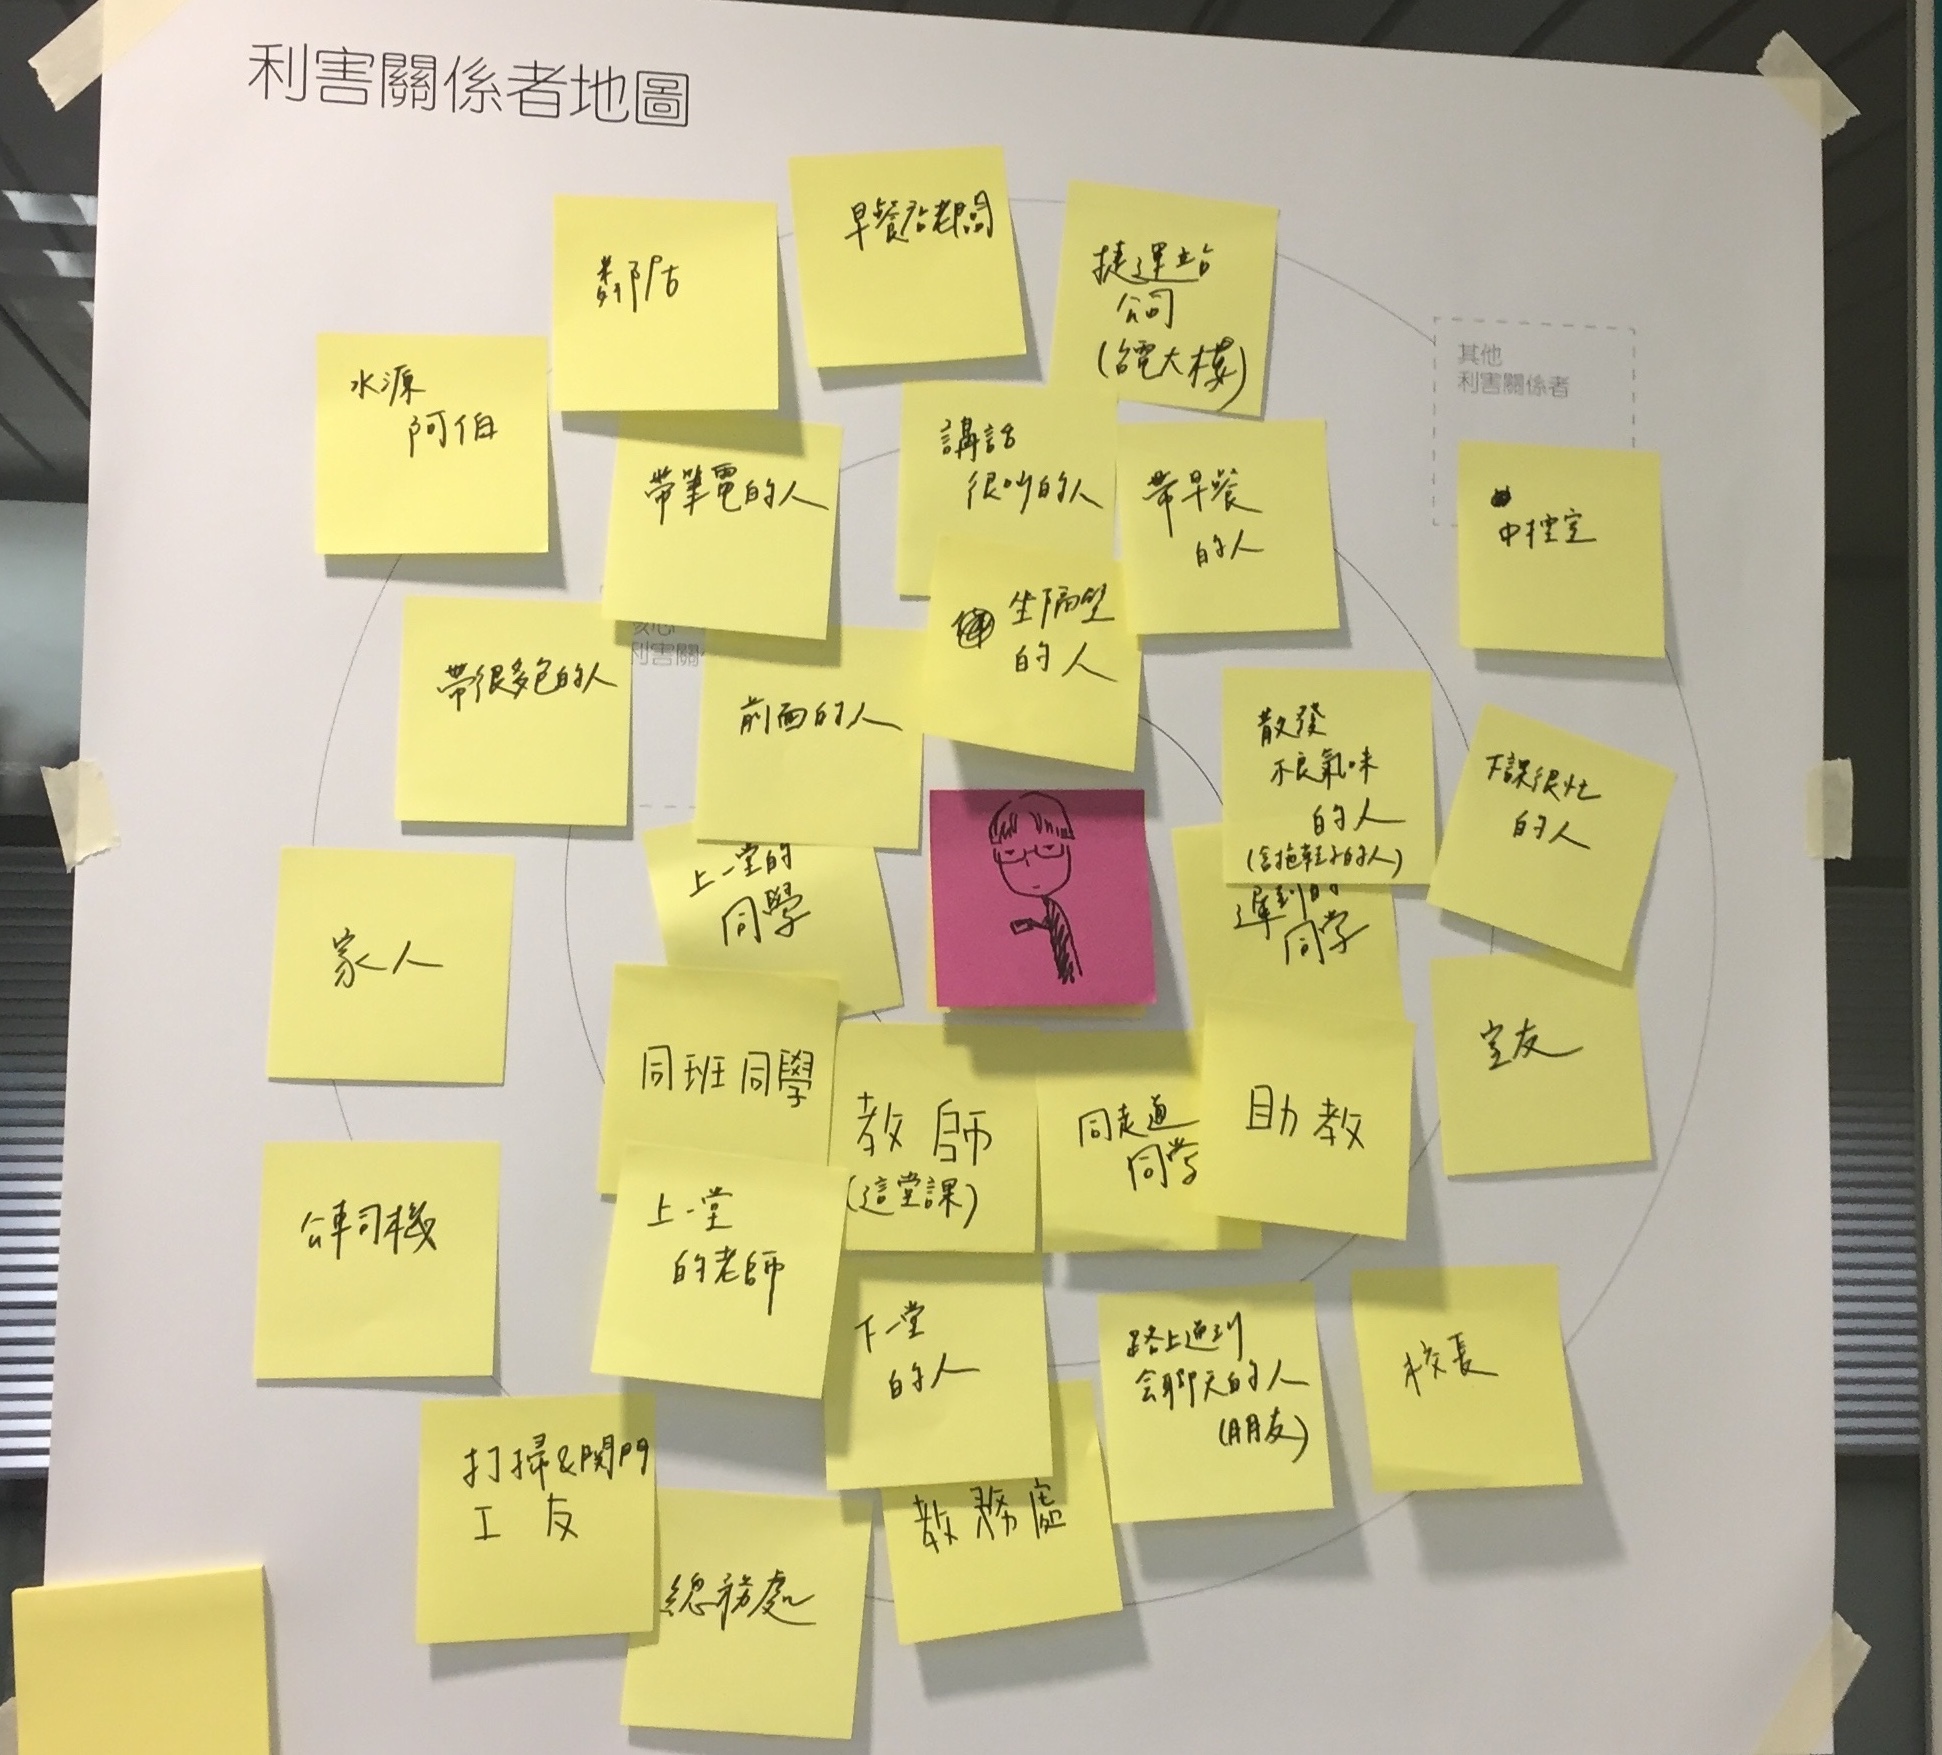 利害關係者地圖
早餐店老闆
鄰居
捷運站
公司
(台電大樓)
其他
利害關係者
水源
阿伯
帶筆電的人
講話
很吵的人
帶早餐
的人
中控室
核心
利害關
帶很多包的人
前面的人
坐隔壁
的人
散發
不良氣味
的人
(含拖鞋子的人)
下課很忙
的人
上一堂的
同學
遲到的
同学
家人
同班同學
教師
(這堂課)
同走道
同学
助教
室友
公車司機
上一堂
的老師
下一堂
的人
路上遇到
会聊天的人
(朋友)
校長
打掃&関門
工友
總務處
教務處